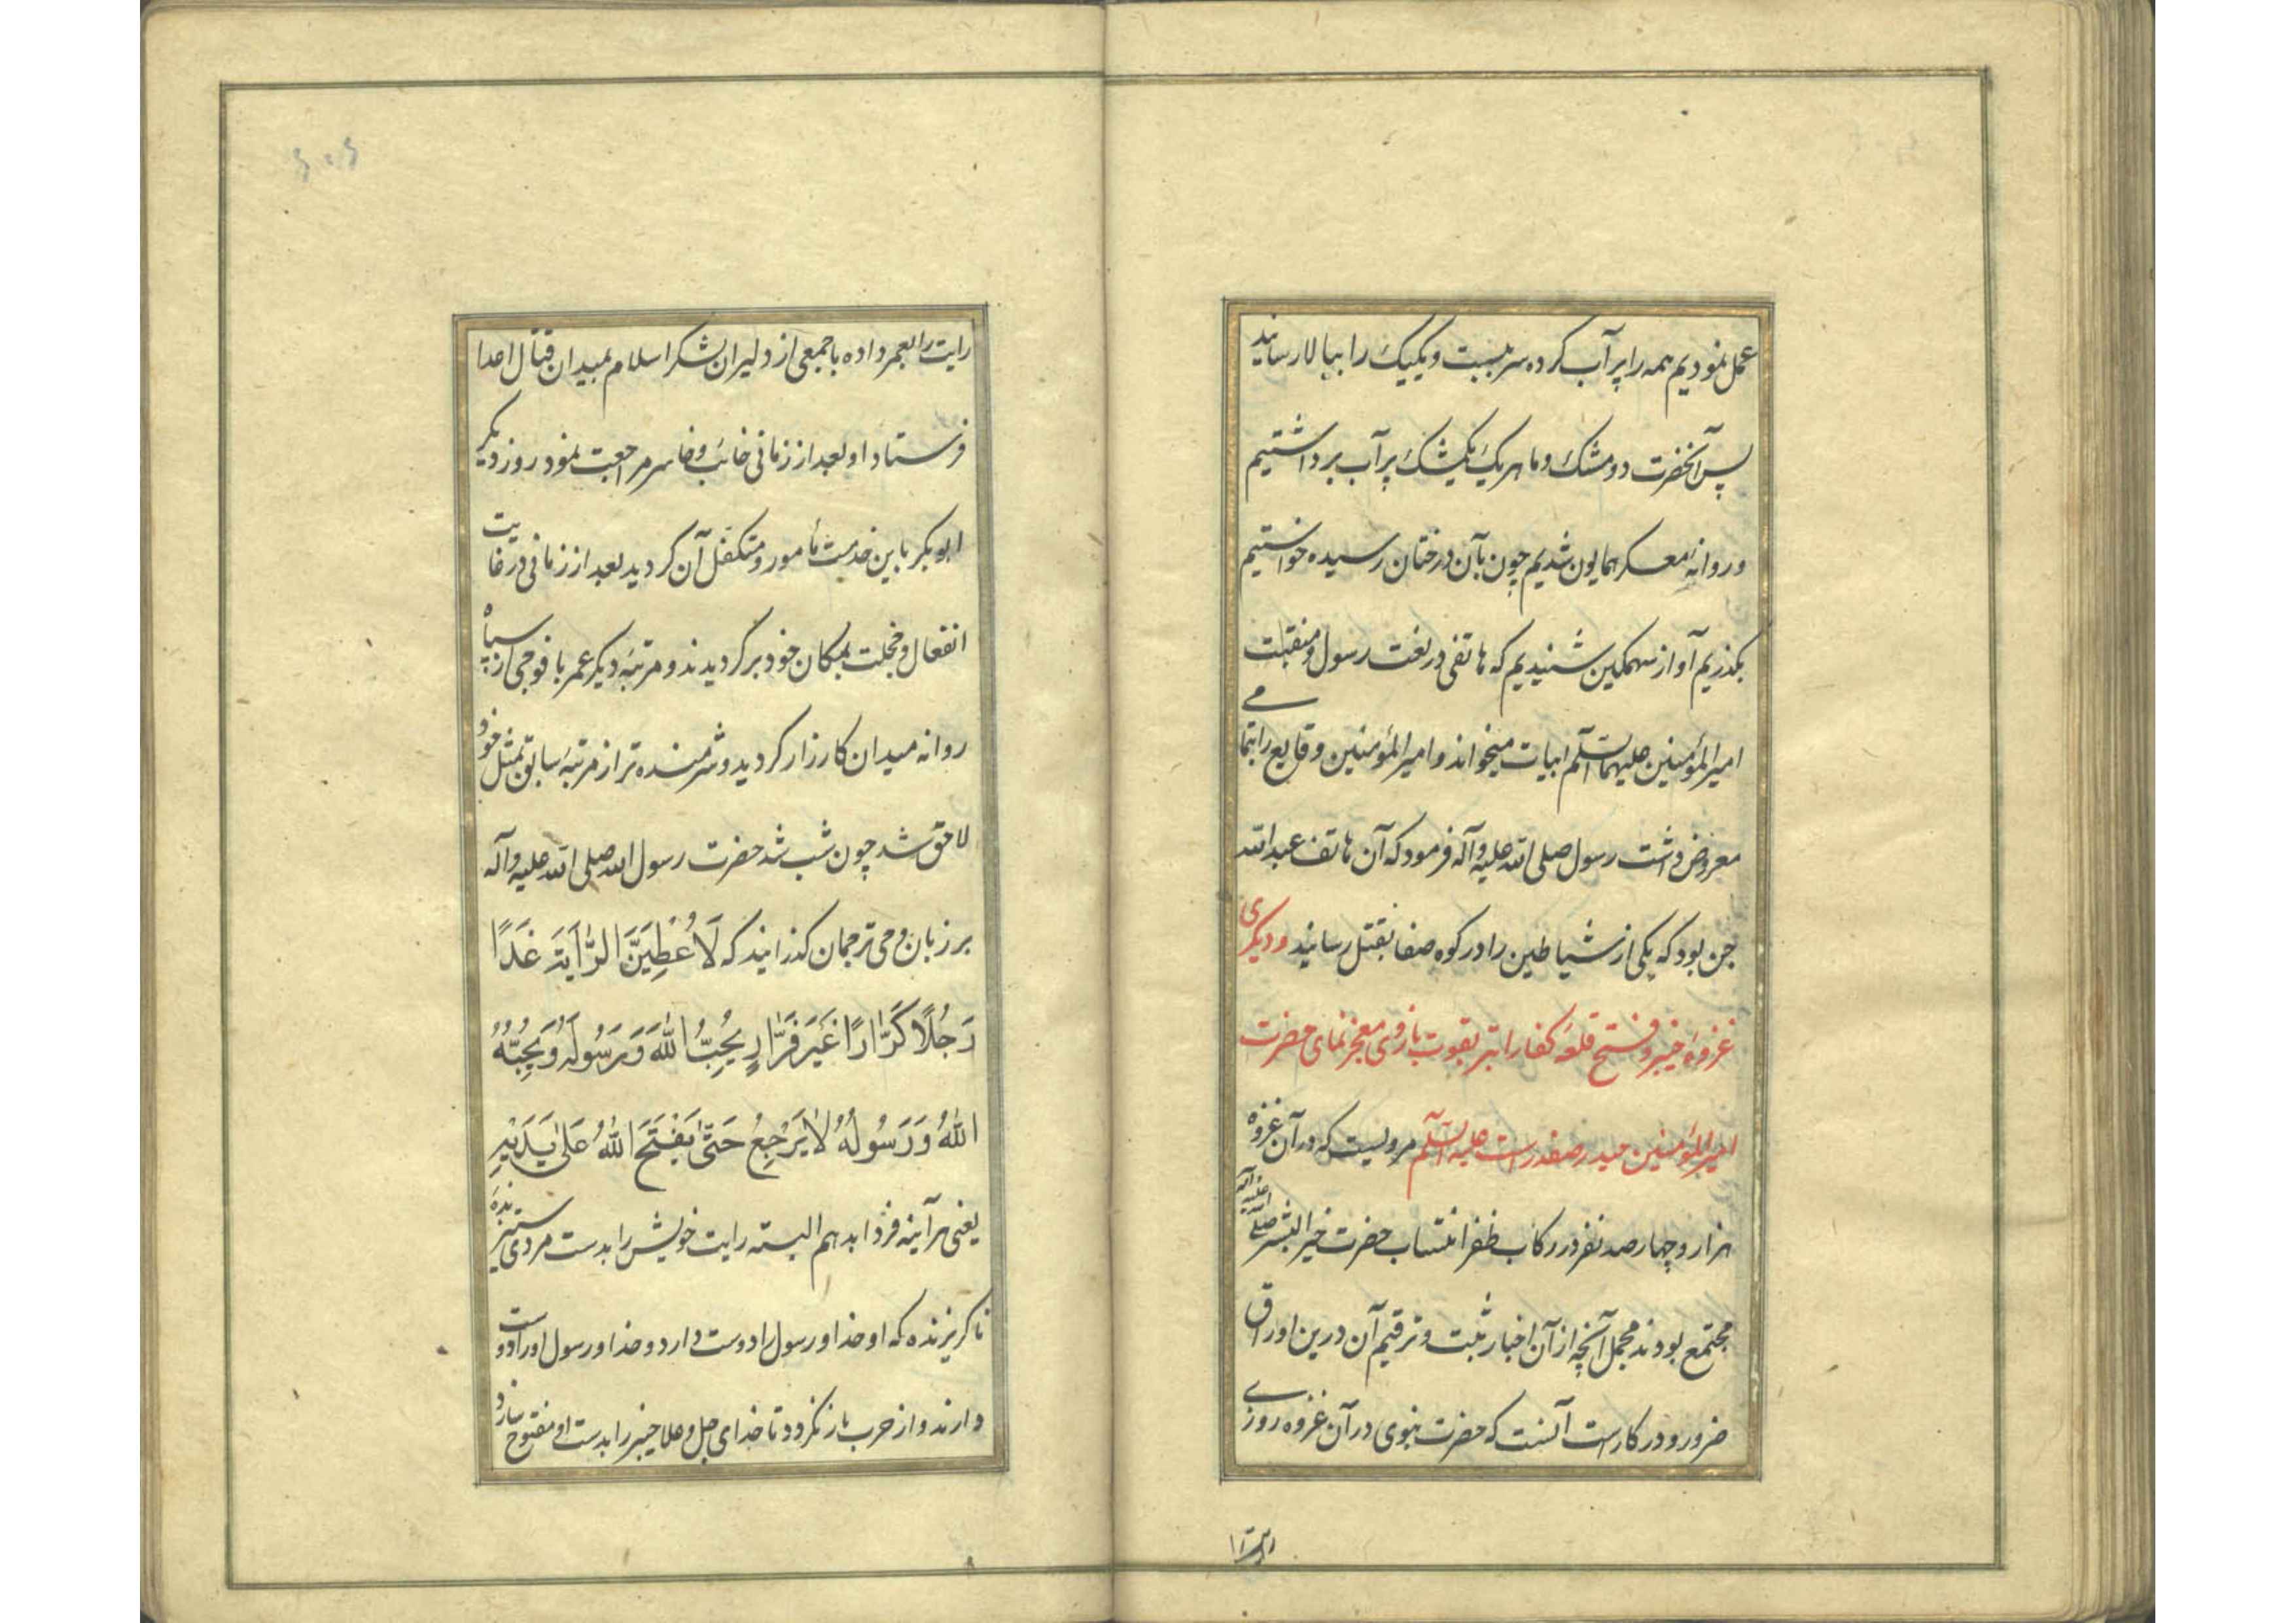 عمل نمودیم همه را پر آب کرده سر ببست و یکیک را ببالا رسانید
پس آنحضرت دو مشک و ما هر یک یکمشک پر آب برداشتیم
و روانهٔ معسکر همایون شدیم چون بآن درختان رسیده خواستیم
بگذریم آواز سهمگین شنیدیم که هاتفی در نعت رسول و منقبت
امیرالمؤمنین علیهما السلم ابیات میخواند و امیرالمؤمنین وقایع را بتمامے
معروض داشت رسول صلی الله علیه وآله فرمود که آن هاتف عبدالله
جن بود که یکی از شیاطین را در کوه صفا بقتل رسانید و دیگری
غزوهٔ خیبر و فتح قلعهٔ کفار ابتر بقوت بازوی معجز نمای حضرت
امیرالمؤمنین حیدر صفدر است علیه السلم مرویست که در آن غزوه
هزار و چهارصد نفر در رکاب ظفر انتساب حضرت خیرالبشر صلی الله علیه وآله
مجتمع بودند مجمل آنچه از آن اخبار ثبت و ترقیم آن درین اوراق
ضرور و در کارست آنست که حضرت نبوی در آن غزوه روزے
رایت را
رایت را بعمر داده با جمعی از دلیران لشکر اسلام بمیدان قتال اعدا
فرستاد او بعد از زمانی خائب و خاسر مراجعت نمود روز دیگر
ابوبکر باین خدمت مأمور و متکفل آن گردید بعد از زمانی در غایت
انفعال و خجلت بمکان خود برگردیدند و مرتبهٔ دیگر عمر با فوجی از سپاه
روانه میدان کارزار گردید و شرمنده تر از مرتبهٔ سابق بمثل خود
لاحق شد چون شب شد حضرت رسول الله صلی الله علیه وآله
بر زبان وحی ترجمان گذرانید که لَاُعْطِیَنَّ الرَّایَةَ غَدًا
رَجُلًا کَرَّارًا غَیْرَ فَرَّارٍ یُحِبُّ اللّٰهَ وَ رَسُولَهُ وَ یُحِبُّهُ
اللّٰهُ وَ رَسُولُهُ لَا یَرْجِعُ حَتّٰی یَفْتَحَ اللّٰهُ عَلٰی یَدَیْهِ
یعنی هر آینه فردا بدهم البته رایت خویش را بدست مردی ستیزنده
ناگریزنده که او خدا و رسول را دوست دارد و خدا و رسول او را دوست
دارند و از حرب باز نگردد تا خدای جل و علا خیبر را بدست او مفتوح سازد